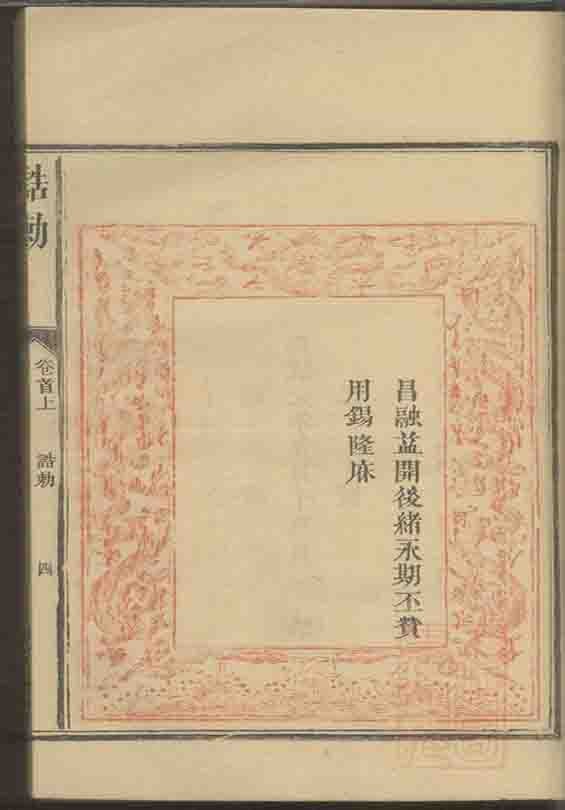 昌融益開後緒永期丕賛
用錫隆庥
誥勅
卷首上
誥勅
四